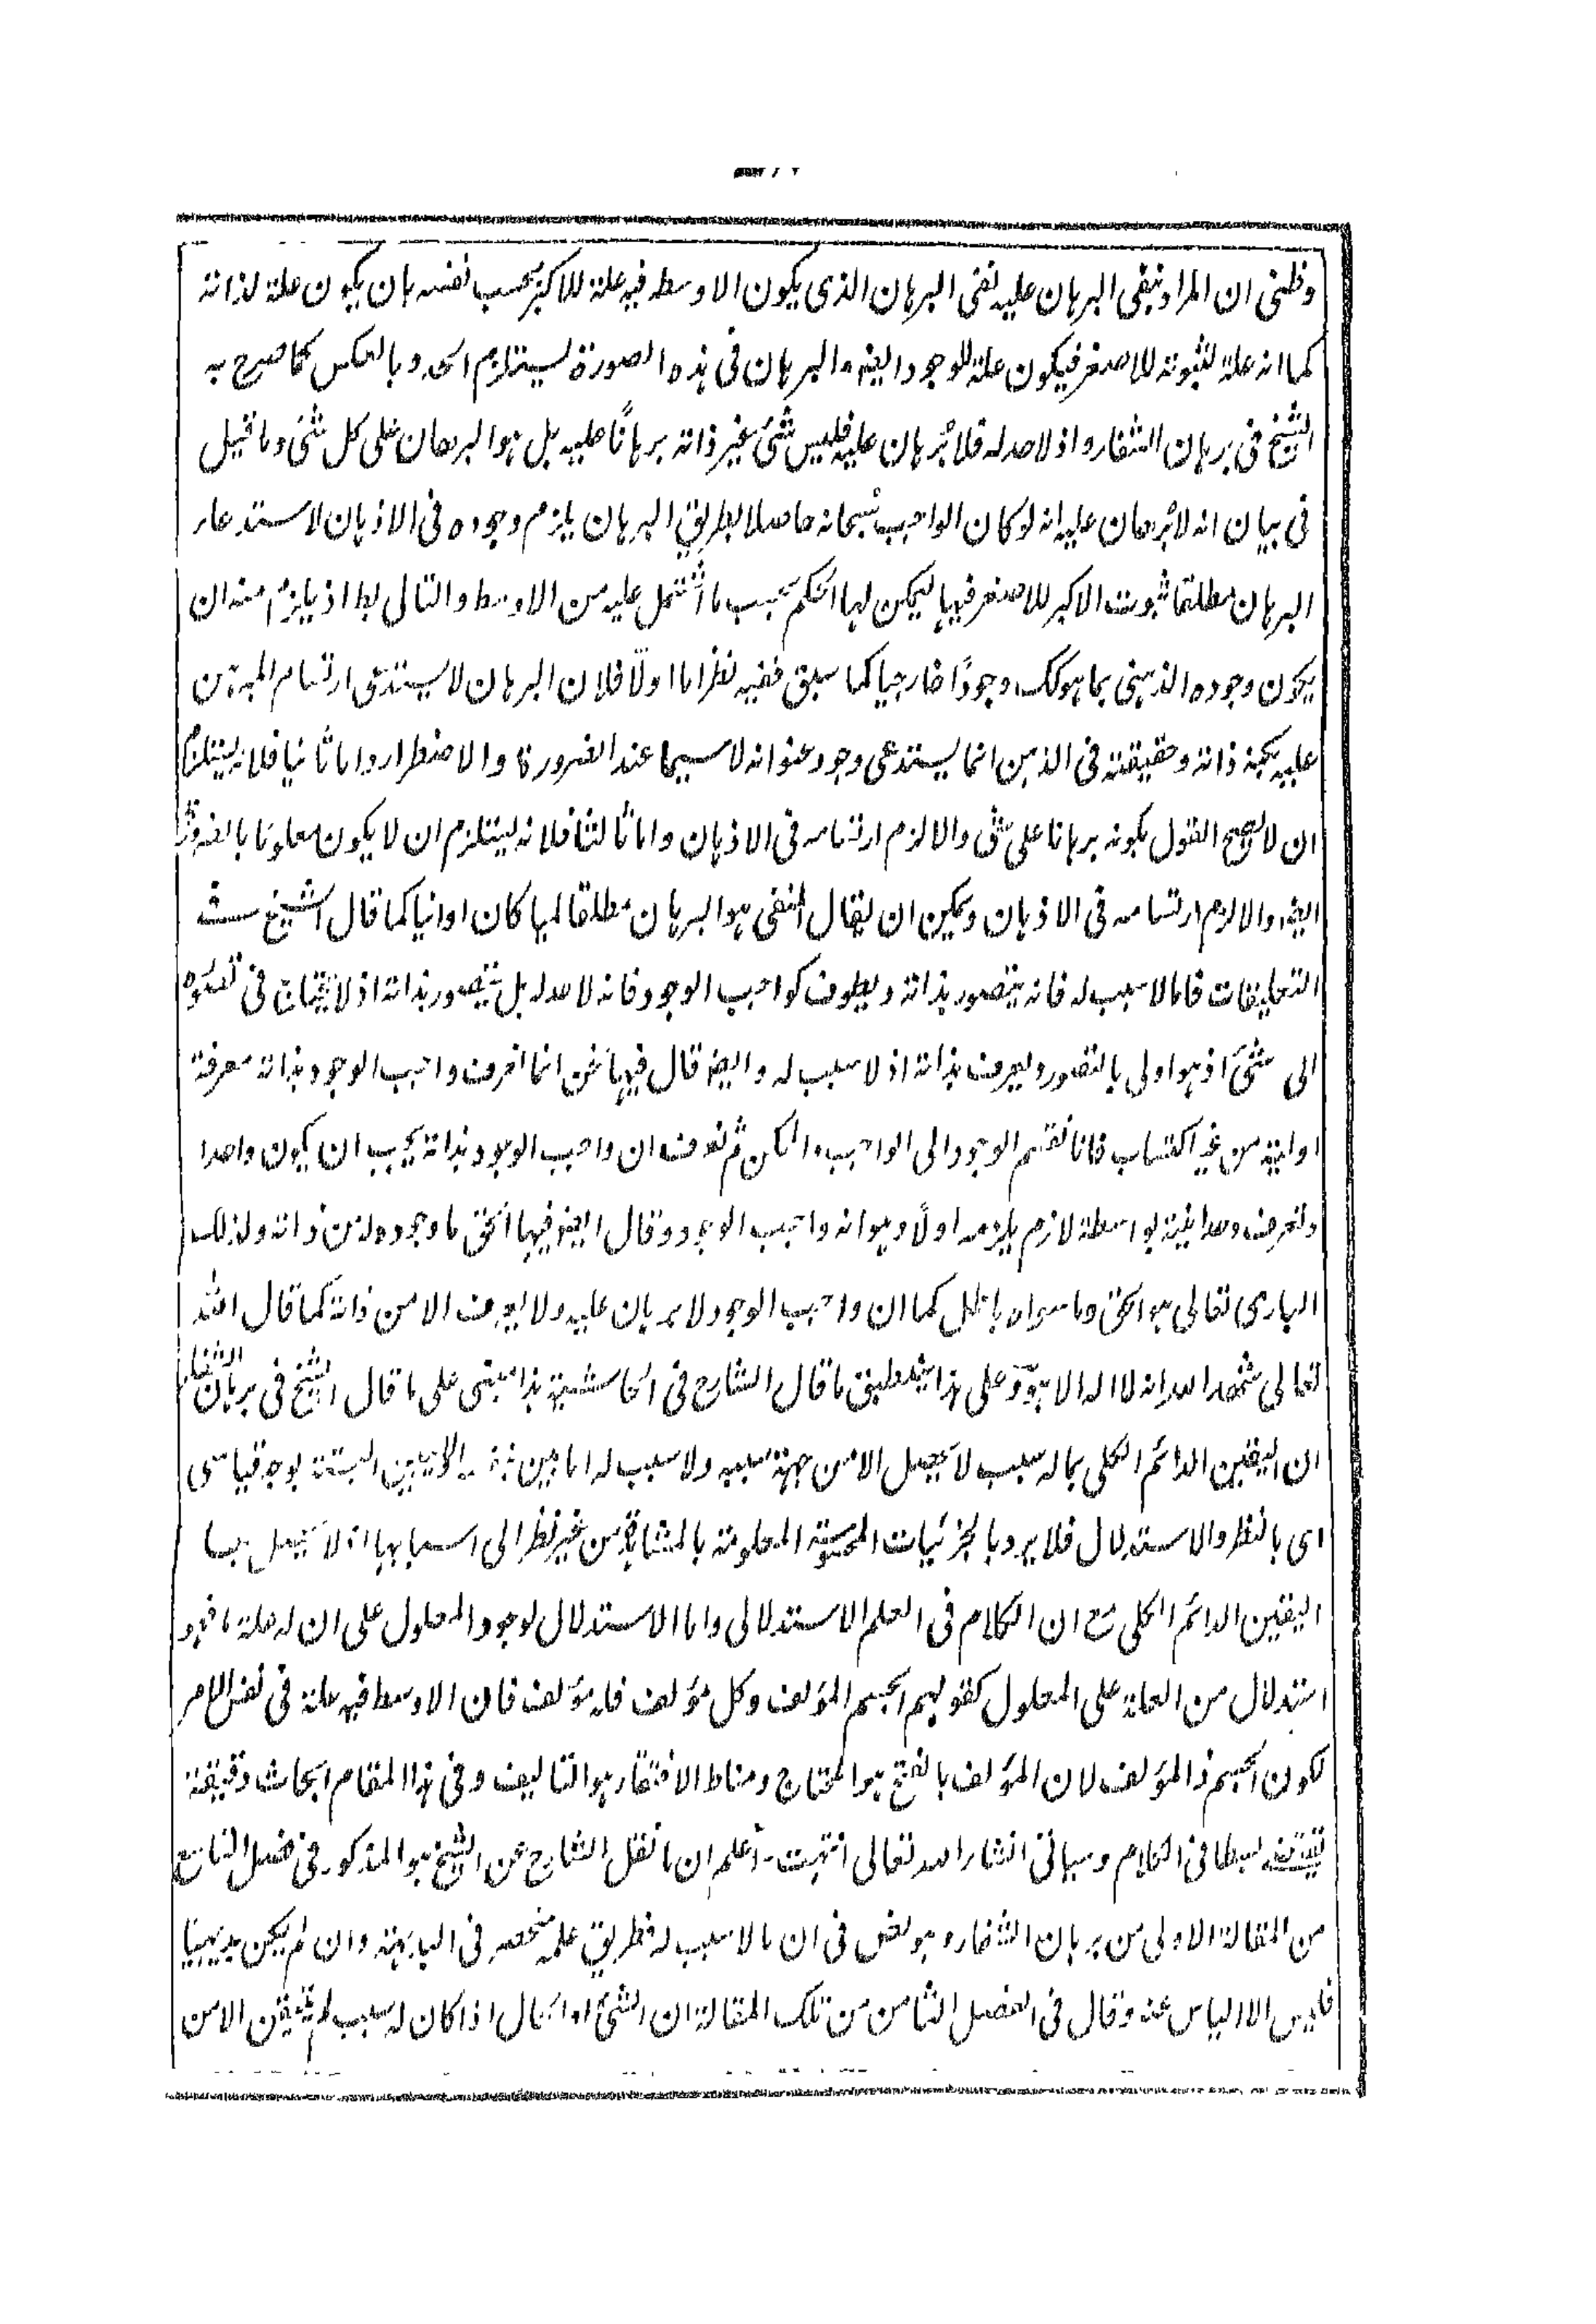 وظني ان المراد بنفي البرهان عليه نفي البرهان الذي يكون الاوسط فيه علة للاكبر بحسب نفسه بان يكون علة لذاته
كما انه علة لثبوته للاصغر فيكون علة للوجود ايضا والبرهان في هذه الصورة يستلزم الحد وبالعكس كما صرح به
الشيخ في برهان الشفاء واذ لا حد له فلا برهان عليه فليس شئ غير ذاته برهانًا عليه بل هو البرهان على كل شئ وما قيل
في بيان انه لا برهان عليه انه لو كان الواجب سبحانه حاصلا بطريق البرهان يلزم وجوده في الاذهان لاستدعاء
البرهان مطلقا ثبوت الاكبر للاصغر فيها ليمكن لها الحكم بحسب ما اشتمل عليه من الاوسط والتالي بط اذ يلزم منه ان
يكون وجوده الذهني بما هو كك وجودًا خارجيا كما سبق ففيه نظر اما اولًا فلان البرهان لا يستدعي ارتسام المبرهن
عليه بكنه ذاته وحقيقته في الذهن انما يستدعي وجود عنوانه لا سيما عند الضرورة والاضطرار واما ثانيا فلانه يستلزم
ان لا يصح القول بكونه برهانا على شئ والا لزم ارتسامه في الاذهان واما ثالثا فلانه يستلزم ان لا يكون معلوما بالضرورة
ايضا والا لزم ارتسامه في الاذهان ويمكن ان يقال المنفي هو البرهان مطلقا لميا كان او انيا كما قال الشيخ في
التعليقات فاما لا سبب له فانه يتصور بذاته ويعرف كواجب الوجود فانه لا حد له بل يتصور بذاته اذ لا يحتاج في تصوره
الى شئ اذ هو اولى بالتصور ويعرف بذاته اذ لا سبب له وايضا قال فيها نحن انما نعرف واجب الوجود بذاته معرفة
اولية من غير اكتساب فانا نقسم الوجود الى الواجب والممكن ثم نعرف ان واجب الوجود بذاته يجب ان يكون واحدا
ونعرف وحدانيته بواسطة لازم يلزمه اولًا وهو انه واجب الوجود وقال ايضا فيها الحق ما وجوده له من ذاته ولذلك
الباري تعالى هو الحق وما سواه باطل كما ان واجب الوجود لا برهان عليه ولا يعرف الا من ذاته كما قال الله
تعالى شهد الله انه لا اله الا هو وعلى هذا ينطبق ما قال الشارح في الحاشية هذا مبني على ما قال الشيخ في برهان الشفاء
ان اليقين الدائم الكلي بما له سبب لا يحصل الا من جهة سببه ولا سبب له اما بين بنفسه او لا يبين البتة بوجه قياسي
اي بالنظر والاستدلال فلا يرد بالجزئيات المحسوسة المعلومة بالمشاهدة من غير نظر الى اسبابها اذ لا يحصل بها
اليقين الدائم الكلي مع ان الكلام في العلم الاستدلالي واما الاستدلال لوجود المعلول على ان له علة ما فهو
استدلال من العلة على المعلول كقولهم الجسم المؤلف وكل مؤلف فله مؤلف فان الاوسط فيه علة في نفس الامر
لكون الجسم ذا المؤلف لان المؤلف بالفتح هو المحتاج ومناط الافتقار هو التاليف وفي هذا المقام ابحاث دقيقة
تقتضي بسطا في الكلام وسياتي انشاء الله تعالى انتهت - اعلم ان ما نقل الشارح عن الشيخ هو المذكور في فصل التاسع
من المقالة الاولى من برهان الشفاء وهو نص في ان ما لا سبب له فطريق علمه منحصر في البداهة وان لم يكن بديهيا
فليس الا الياس عنه وقال في الفصل الثامن من تلك المقالة ان الشئ او الحال اذا كان له سبب لم يتيقن الا من